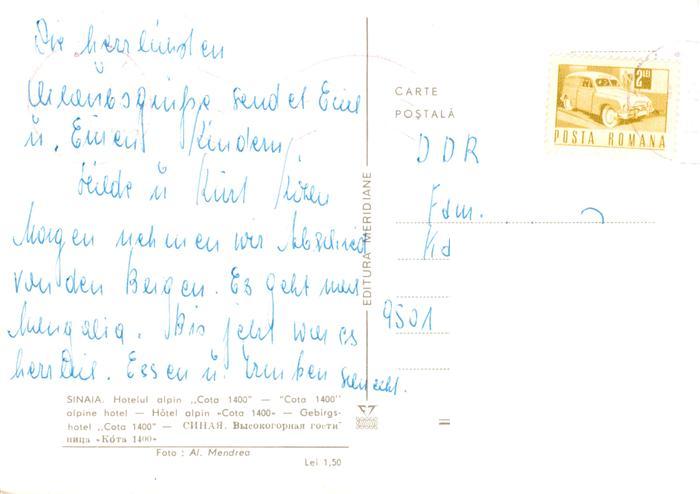 Die herrlichsten
Urlaubsgrüße sendet Euch
u. Euren Kindern
Hilde u Kurt
Morgen nehmen wir Abschied
von den Bergen. Es geht nach
Mangalia. Bis jetzt war es
herrlich. Essen u. Trinken
CARTE
POȘTALĂ
2 LEI
POSTA ROMANA
DDR
Fam.
9501
EDITURA MERIDIANE
SINAIA. Hotelul alpin „Cota 1400" — "Cota 1400"
alpine hotel — Hôtel alpin «Cota 1400» — Gebirgs-
hotel „Cota 1400" — СИНАЯ. Высокогорная гости-
ница «Кóта 1400»
Foto : Al. Mendrea
Lei 1,50